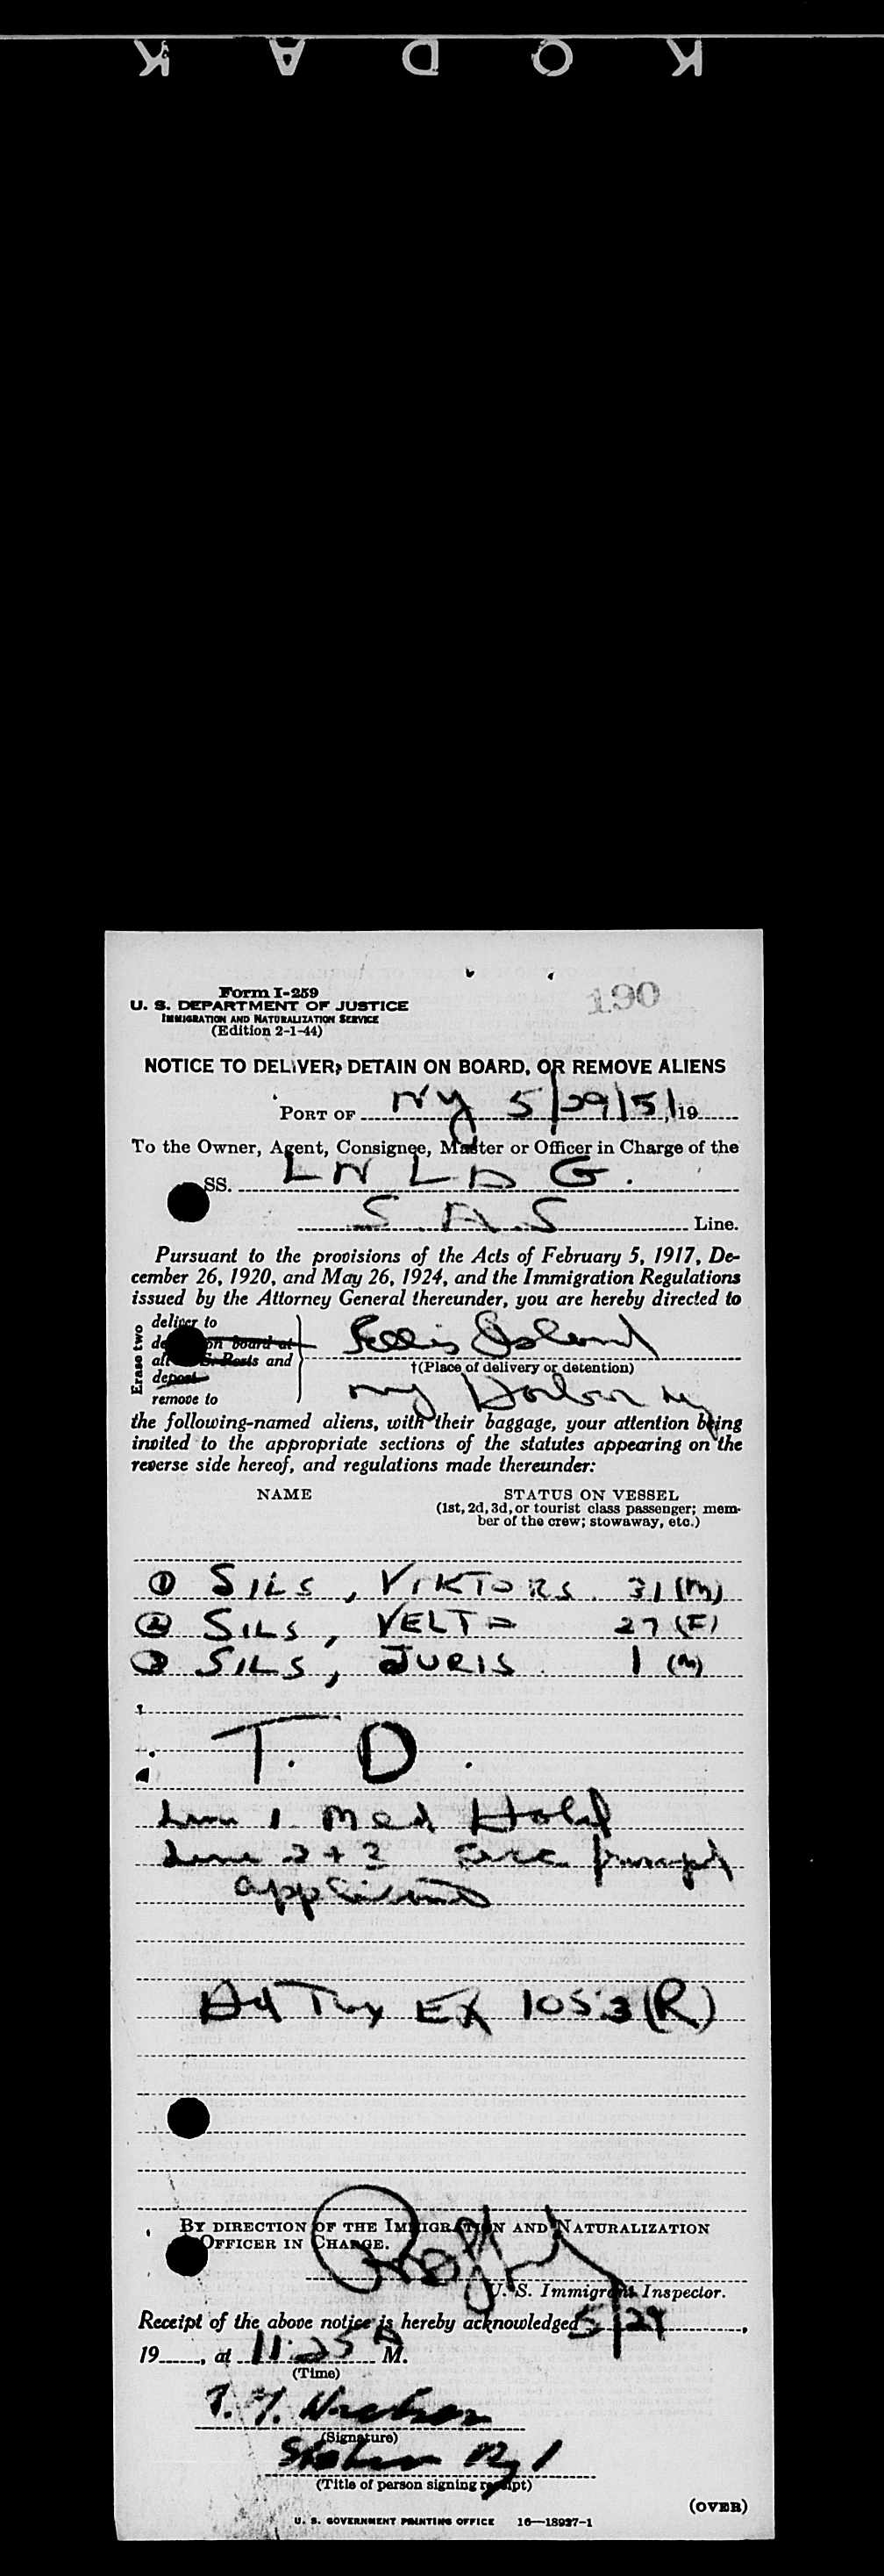 KODAK
Form I-259
190
U. S. DEPARTMENT OF JUSTICE
IMMIGRATION AND NATURALIZATION SERVICE
(Edition 2-1-44)
NOTICE TO DELIVER, DETAIN ON BOARD, OR REMOVE ALIENS
PORT OF NY 5/29/51, 19
To the Owner, Agent, Consignee, Master or Officer in Charge of the
SS. LN LAG.
SAS Line.
Pursuant to the provisions of the Acts of February 5, 1917, De-
cember 26, 1920, and May 26, 1924, and the Immigration Regulations
issued by the Attorney General thereunder, you are hereby directed to
Erase two
deliver to
on board at Ellis Island
U. S. Posts and †(Place of delivery or detention)
depost
remove to NY Harbor NY
the following-named aliens, with their baggage, your attention being
invited to the appropriate sections of the statutes appearing on the
reverse side hereof, and regulations made thereunder:
NAME STATUS ON VESSEL
(1st, 2d, 3d, or tourist class passenger; mem-
ber of the crew; stowaway, etc.)
① SILS, VIKTORS 31 (M)
② SILS, VELTA 27 (F)
③ SILS, JURIS 1 (M)
T. D.
Line 1 Med Hold
Line 2 + 3 acc principal
applicant
Ex 1053 (R)
BY DIRECTION OF THE IMMIGRATION AND NATURALIZATION
OFFICER IN CHARGE.
U. S. Immigrant Inspector.
Receipt of the above notice is hereby acknowledged 5/29,
19, at 11:25 A M.
(Time)
(Signature)
(Title of person signing receipt)
(OVER)
U. S. GOVERNMENT PRINTING OFFICE 16—18927-1